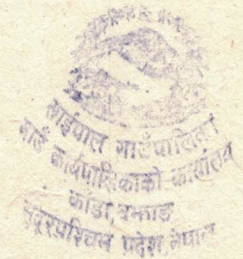 साईपाल गाउँपालिका
गाउँ कार्यपालिकाको कार्यालय
काँडा, बझाङ
सुदूरपश्चिम प्रदेश, नेपाल